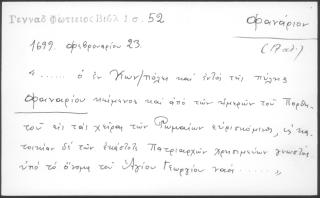 Γενναδ. Φωτιειος Βιβλ 1 σ. 52
φανάριον
(Παλ.)
1699. φεβρουαρίου 23.
"...... ὁ ἐν Κων/πόλει καὶ ἐντὸς τῆς πύλης
Φαναρίου κείμενος καὶ ἀπὸ τῶν ἡμερῶν τοῦ Πορθη-
τοῦ εἰς τὰς χεῖρας τῶν Ρωμαίων εὑρισκόμενος, εἰς κα-
τοικίαν δὲ τῶν ἑκάστοτε Πατριαρχῶν χρησιμεύων γνωστὸς
ὑπὸ τὸ ὄνομα τοῦ Ἁγίου Γεωργίου ναὸς ...... »